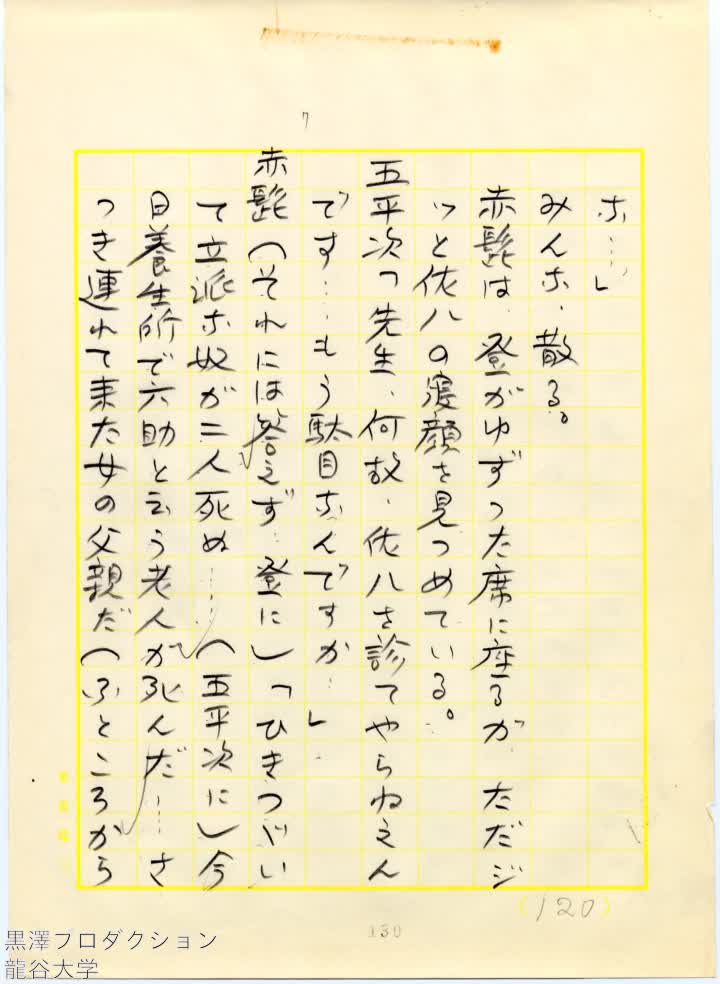 な…」
みんな、散る。
赤髭は、登がゆずった席に座るが、ただジ
ッと佐八の寝顔を見つめている。
五平次「先生、何故、佐八を診てやらねえん
です……もう駄目なんですか…」
赤髭（それには答えず、登に）「ひきつゞい
て立派な奴が二人死ぬ……（五平次に）今
日養生所で六助と云う老人が死んだ……さ
っき連れて来た女の父親だ（ふところから
(120)
130
7
黒澤プロダクション
龍谷大学